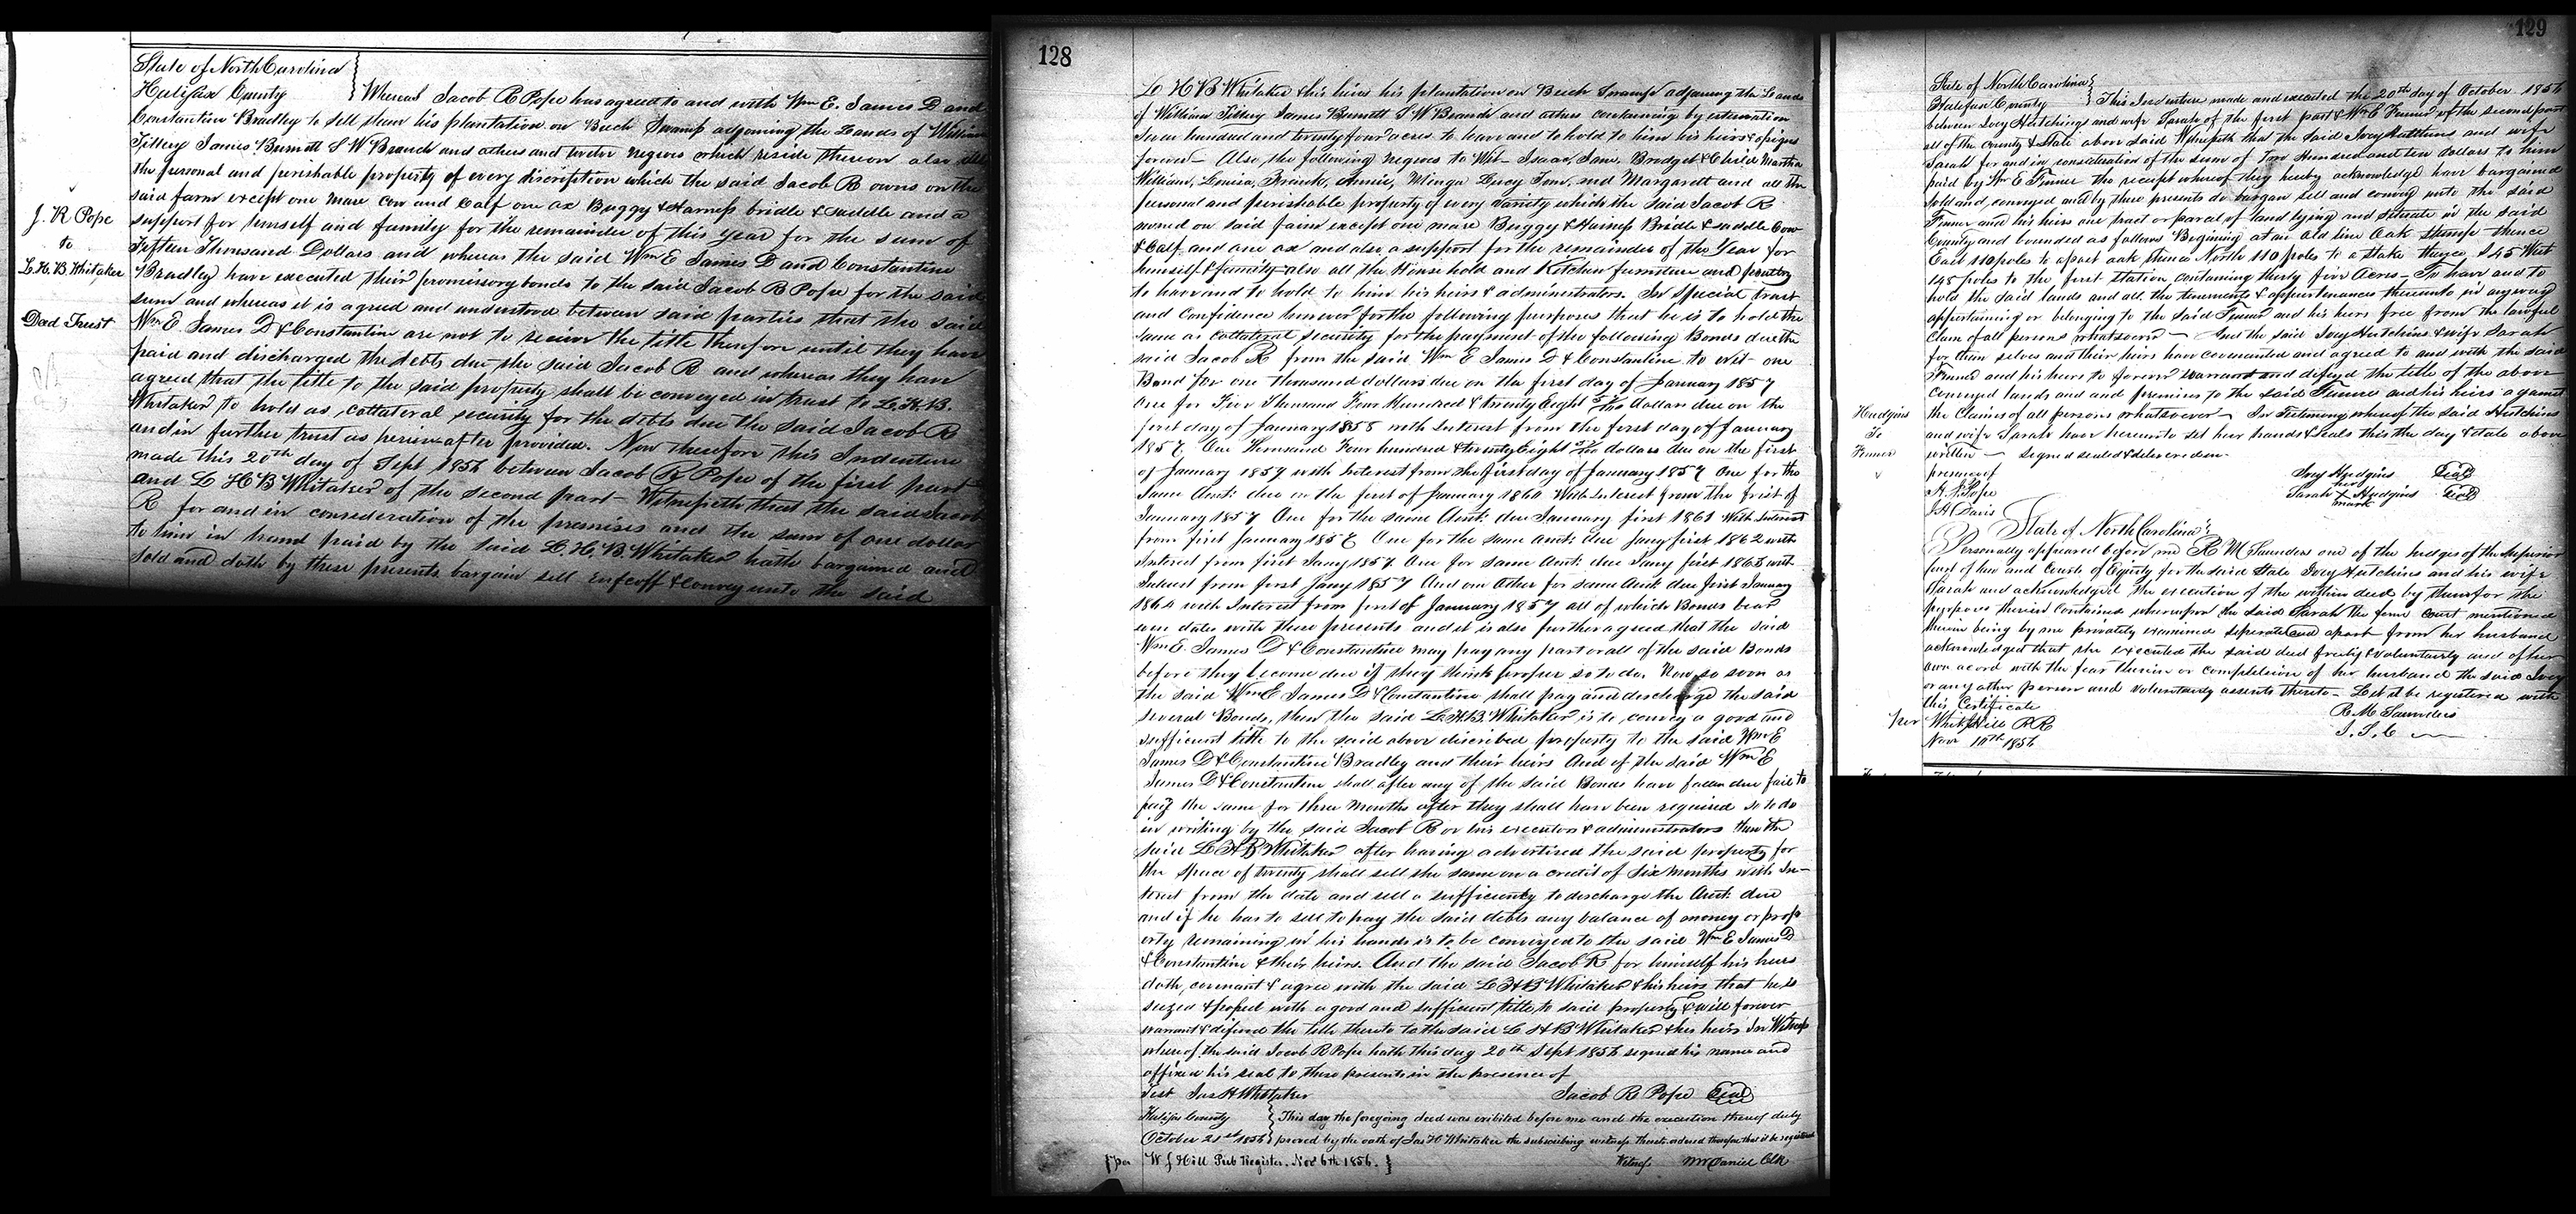 State of North Carolina
Halifax County } Whereas Jacob R Pope has agreed to and with Wm E. James D and
Constantine Bradley to sell them his plantation on Beech Swamp adjoining the Lands of William
Tillery James Burnett S W Branch and others and twelve negroes which reside thereon also all
the personal and perishable property of every discription which the said Jacob R owns on the
said farm except one mare cow and calf one ox Buggy & Harness bridle & saddle and a
J. R Pope
to
L. H. B. Whitaker
Deed Trust
support for himself and family for the remainder of this year for the sum of
Fifteen Thousand Dollars and whereas the said Wm E James D and Constantine
Bradley have executed their promissory bonds to the said Jacob R Pope for the said
sum and whereas it is agreed and understood between said parties that the said
Wm E. James D & Constantine are not to receive the title therefore until they have
paid and discharged the debts due the said Jacob R and whereas they have
agreed that the title to the said property shall be conveyed in trust to L. H. B.
Whitaker to hold as collateral security for the debts due the said Jacob R
and in further trust as herein after provided. Now therefore this Indenture
made this 20th day of Sept 1856 between Jacob R Pope of the first part
and L H B Whitaker of the second part Witnesseth that the said Jacob
R for and in consideration of the premises and the sum of one dollar
to him in hand paid by the said L. H. B. Whitaker hath bargained and
sold and doth by these presents bargain sell enfeoff & convey unto the said
128
L. H B Whitaker & his heirs his plantation on Beech Swamp adjoining the Lands
of William Tillery James Burnett S W Branch and others containing by estimation
Seven hundred and twenty four acres to have and to hold to him his heirs & assigns
forever Also the following negroes to Wit Isaac, Sam, Bridget & Child Martha
William, Louisa, Frank, Annie, Minga Lucy Tom, and Margarett and all the
personal and perishable property of every variety which the said Jacob R
owned on said farm except one mare Buggy & Harness Bridle & saddle Cow
& Calf and one ox and also a support for the remainder of the Year for
himself & family also all the House hold and Kitchen furniture and poultry
to have and to hold to him his heirs & administrators. In Special trust
and Confidence however for the following purposes that he is to hold the
same as collateral security for the payment of the following Bonds due the
said Jacob R from the said Wm E James D & Constantine to wit one
Bond for one thousand dollars due on the first day of January 1857
One for Five Thousand Four Hundred & twenty Eight dollars due on the
first day of January 1858 with Interest from the first day of January
1857. One Thousand Four hundred & twenty Eight dollars due on the first
of January 1859 with Interest from the first day of January 1857 One for the
same Amt: due on the first of January 1860 With Interest from the first of
January 1857 One for the same Amt: due January first 1861 With Interest
from first January 1857 One for the same Amt: due Jany first 1862 with
Interest from first Jany 1857. One for same Amt: due Jany first 1863 with
Interest from first Jany 1857 And one Other for same Amt due first January
1864 with Interest from first of January 1857 all of which Bonds bear
even date with these presents and it is also further agreed that the said
Wm E. James D & Constantine may pay any part or all of the said Bonds
before they become due if they think proper so to do. Now so soon as
the said Wm E James D & Constantine shall pay and discharge the said
several Bonds, then the said L. H. B. Whitaker is to convey a good and
sufficient title to the said above discribed property to the said Wm E
James D & Constantine Bradley and their heirs And if the said Wm E
James D & Constantine shall after any of the said Bonds have fallen due fail to
pay the same for three Months after they shall have been required so to do
in writing by the said Jacob R or his executors & administrators then the
said L H B Whitaker after having advertised the said property for
the space of twenty shall sell the same on a credit of Six months with In-
terest from the date and sell a sufficiency to discharge the Amt: due
and if he has to sell to pay the said debts any balance of money or prop
erty remaining in his hands is to be conveyed to the said Wm E James D
& Constantine & their heirs. And the said Jacob R for himself his heirs
doth, covenant & agree with the said L H B Whitaker & his heirs that he is
seized & posses with a good and sufficient title to said property & will forever
warrant & defend the title thereto to the said L H B Whitaker & his heirs In Witness
where of the said Jacob R Pope hath this day 20th Sept 1856 signed his name and
affixed his seal to these presents in the presence of
Test Jas H Whitaker Jacob R Pope Seal
Halifax County } This day the foregoing deed was exibited before me and the execution thereof duly
October 21st 1856 } proved by the oath of Jas H Whitaker the subscribing witness thereto ordered therefore that it be registered
W J Hill Pub Register. Nov 6th 1856. } Witness McDaniel Clk
129
State of North Carolina
Halifax County } This Indenture made and executed the 20th day of October 1856
between Ivey Hutchings and wife Sarah of the first part & Wm E Finner of the second part
all of the County & State above said Witnesseth that the said Ivey Hutchins and wife
Sarah for and in consideration of the sum of Two Hundred and ten dollars to him
paid by Wm E Finner the receipt whereof they hereby acknowledged have bargained
sold and conveyed and by these presents do bargain sell and convey unto the said
Finner and his heirs one tract or parcel of land lying and situate in the said
County and bounded as follows Begining at an old line Oak stump thence
East 110 poles to a post oak thence North 110 poles to a stake thence S 45 West
148 poles to the first station, containing thirty five Acres To have and to
hold the said lands and all the tenements & appurtenances thereunto in anyway
appertaining or belonging to the said Finner and his heirs free from the lawful
claim of all persons whatsoever And the said Ivey Hutchins & wife Sarah
for them selves and their heirs have covenanted and agreed to and with the said
Finner and his heirs to forever warrant and defend the title of the above
conveyed lands and and premises to the said Finner and his heirs against
Hudgins
To
Finner
the Claims of all persons whatsoever In testimony whereof the said Hutchins
and wife Sarah have hereunto set hear hands & seals this the day & date above
written Signed sealed & delivered in
presence of Ivey Hudgins Seal
H. J. Pope her
Sarah X Hudgins Seal
J H Davis mark
State of North Carolina
Personally appeared before me R M Saunders one of the Judges of the Superior
Court of law and Courts of Equity for the said State Ivey Hutchins and his wife
Sarah and acknowledged the execution of the within deed by them for the
purposes therein Contained whereupon the said Sarah the feme Covert mentioned
therein being by me privately examined seperate and apart from her husband
acknowledged that she executed the said deed freely & voluntarily and of her
own acord with the fear therein or compulsion of her husband the said Ivey
or any other person and voluntarily assents thereto Let it be registered with
this Certificate R. M. Saunders
J. S. C
Whit Hill P R
Nov 10th 1856